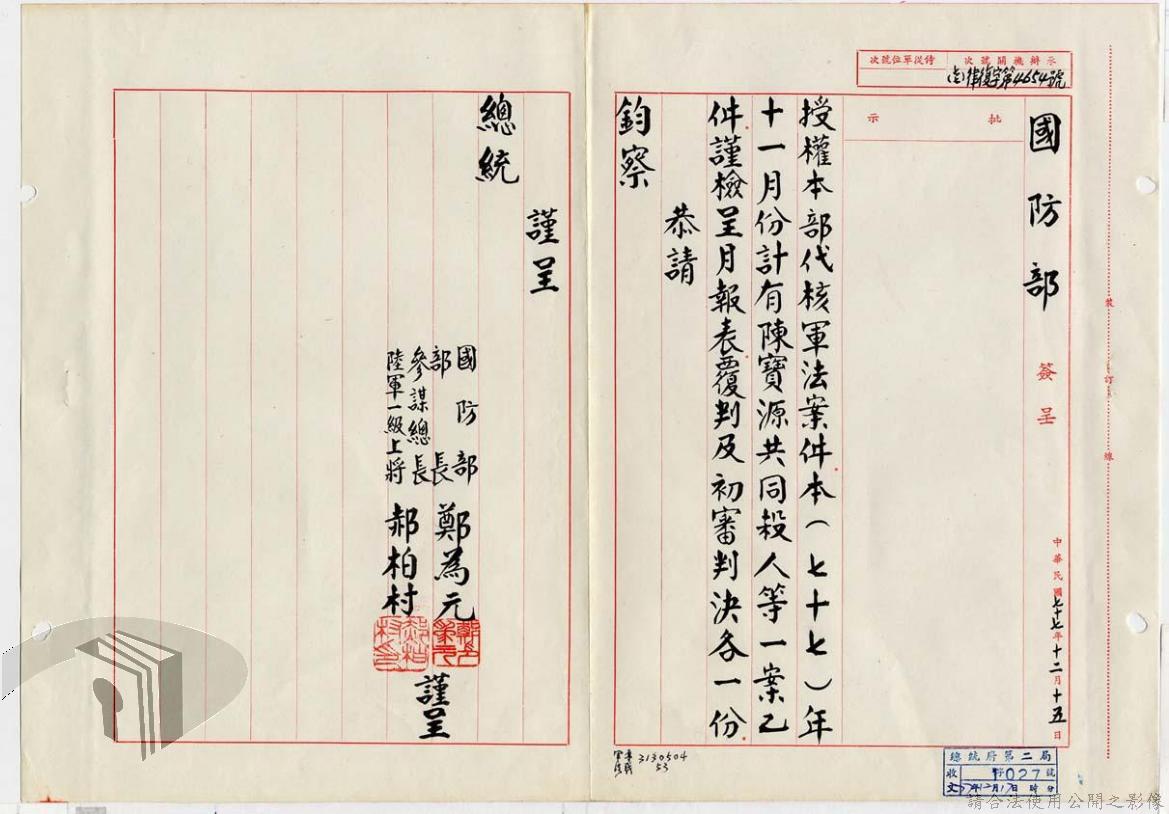 承辦機關號次
侍從單位號次
律復字第4654號
國防部 簽呈
中華民國七十七年十二月十五日
批示
授權本部代核軍法案件本(七十七)年
十一月份計有陳寶源共同殺人等一案乙
件謹檢呈月報表覆判及初審判決各一份
恭請
鈞察
謹呈
總統
國防部
部長 鄭為元
參謀總長
陸軍一級上將 郝柏村
謹呈
裝
訂
線
3130504
53
總統府第二局
收文
027號
年12月17日 時 分
請合法使用公開之影像